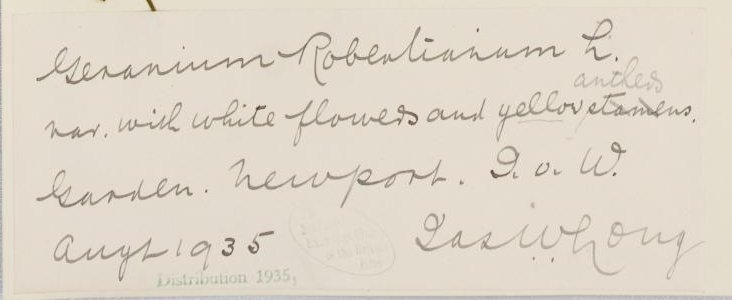 Geranium Robertianum L.
anthers
var. with white flowers and yellow stamens.
Garden. Newport. I. o. W.
Augt 1935
Jas. W. Long
Distribution 1935,